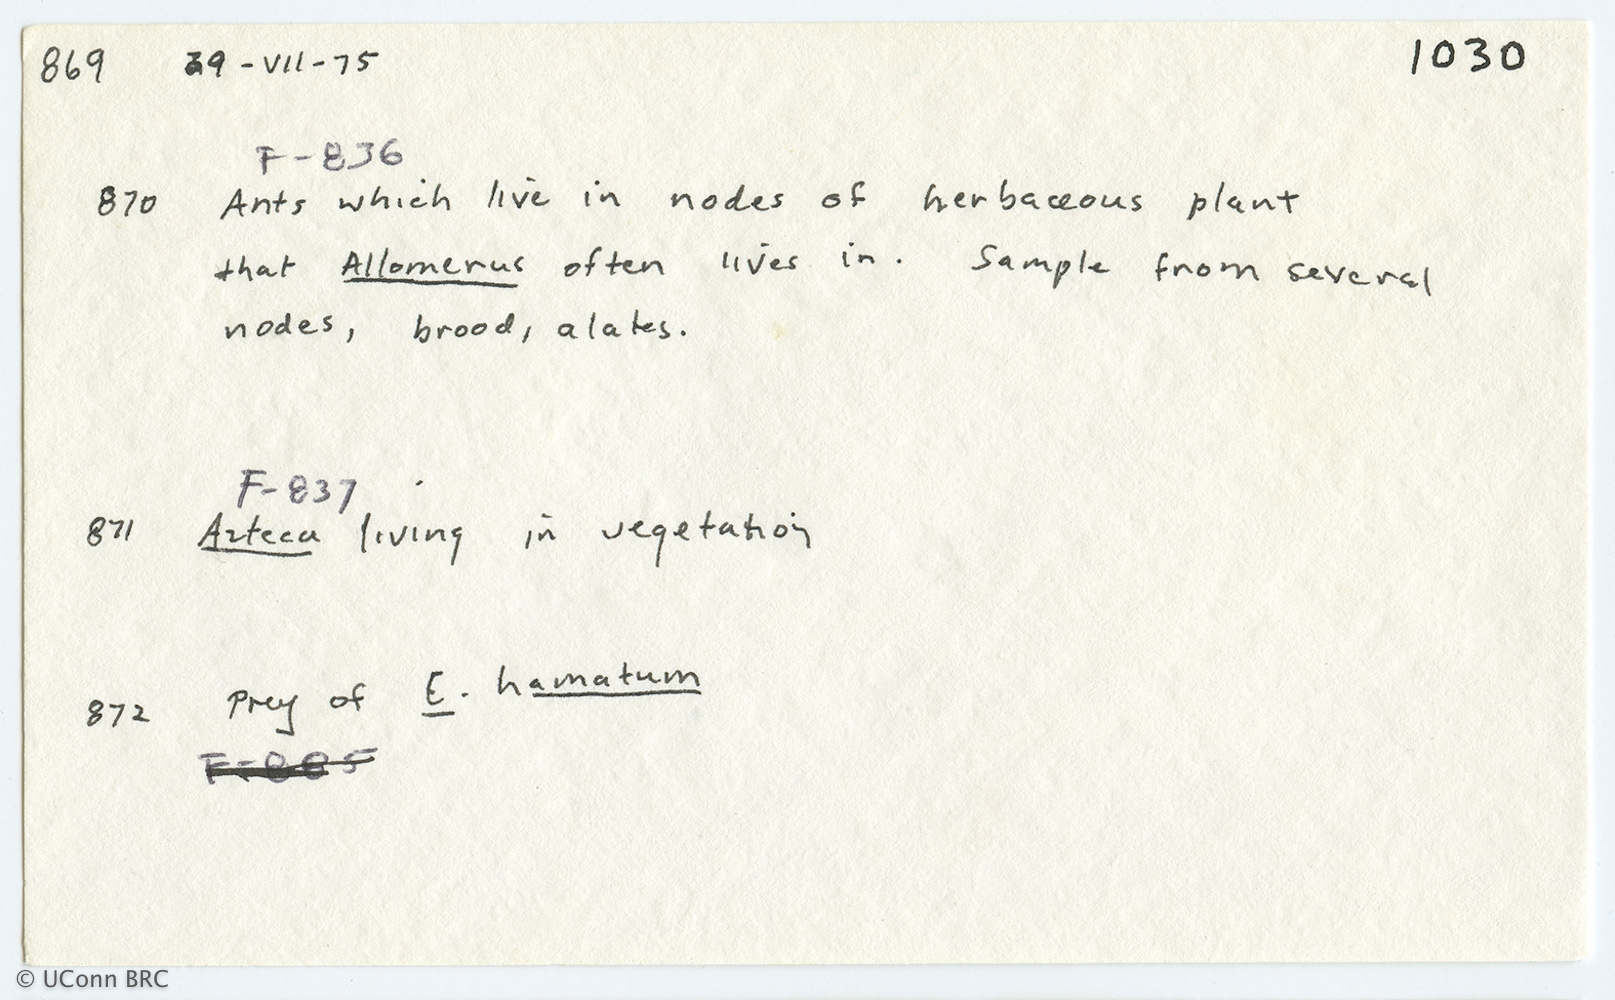 869 29-VII-75 1030
F-836
870 Ants which live in nodes of herbaceous plant
that Allomerus often lives in. Sample from several
nodes, brood, alates.
F-837
871 Azteca living in vegetation
872 Prey of E. hamatum
F-885
© UConn BRC